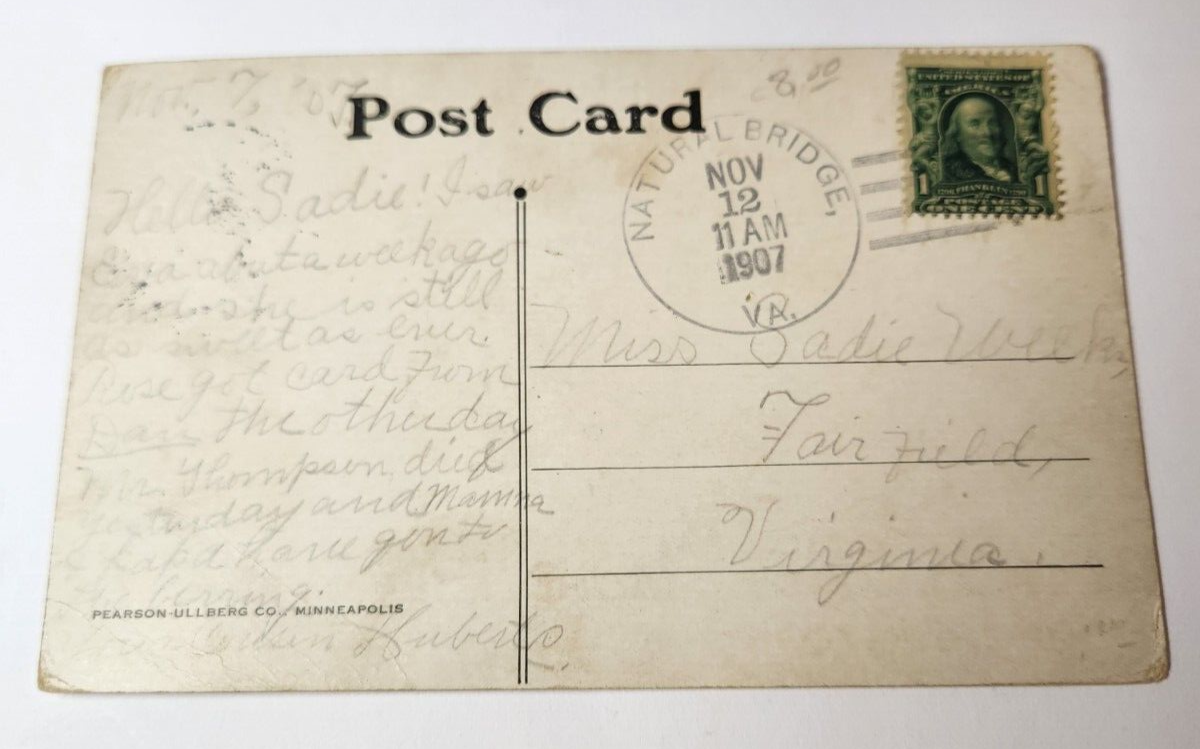 Nov. 7, '07
8.00
Post Card
UNITED STATES OF
AMERICA
1 1
FRANKLIN
POSTAGE
ONE CENT
NATURAL BRIDGE,
NOV
12
11 AM
1907
VA.
Hello Sadie! I saw
about a week ago
and she is still
as sweet as ever.
Rose got card from
Dan the other day
Mr. Thompson died
yesterday and Mamma
& have gon to
the
PEARSON-ULLBERG CO., MINNEAPOLIS
Huberts.
Miss Sadie
Fairfield,
Virginia.